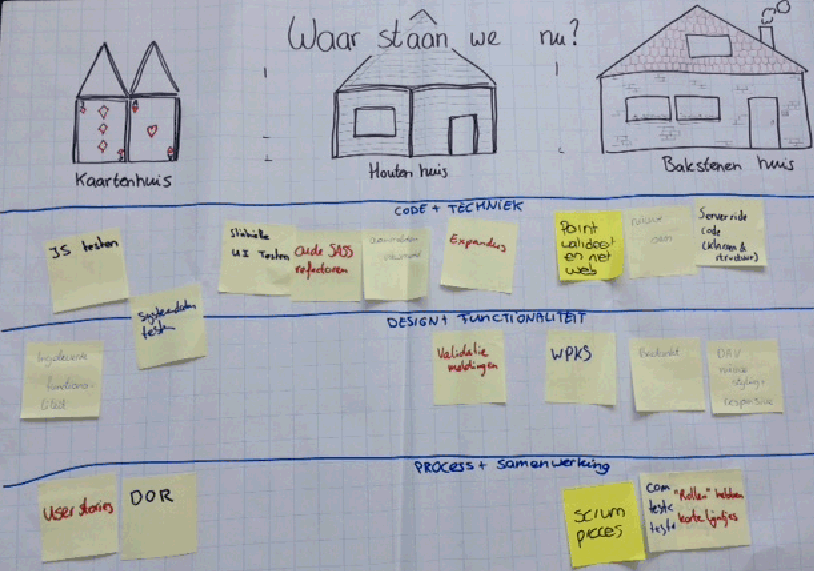 Waar staan we nu?
Kaartenhuis
Houten huis
Bakstenen huis
CODE + TECHNIEK
JS testen
UI Testen
Oude SASS
refactoren
Expanders
Point
valideert
en niet
web
Serverside
code
(klassen &
structuur)
testen
DESIGN + FUNCTIONALITEIT
functiona-
liteit
Validatie
meldingen
WPKS
DAV
nieuwe
responsive
PROCESS + Samenwerking
User stories
DOR
scrum
proces
com
teste
teste
"Rollen" hebben
korte lijntjes